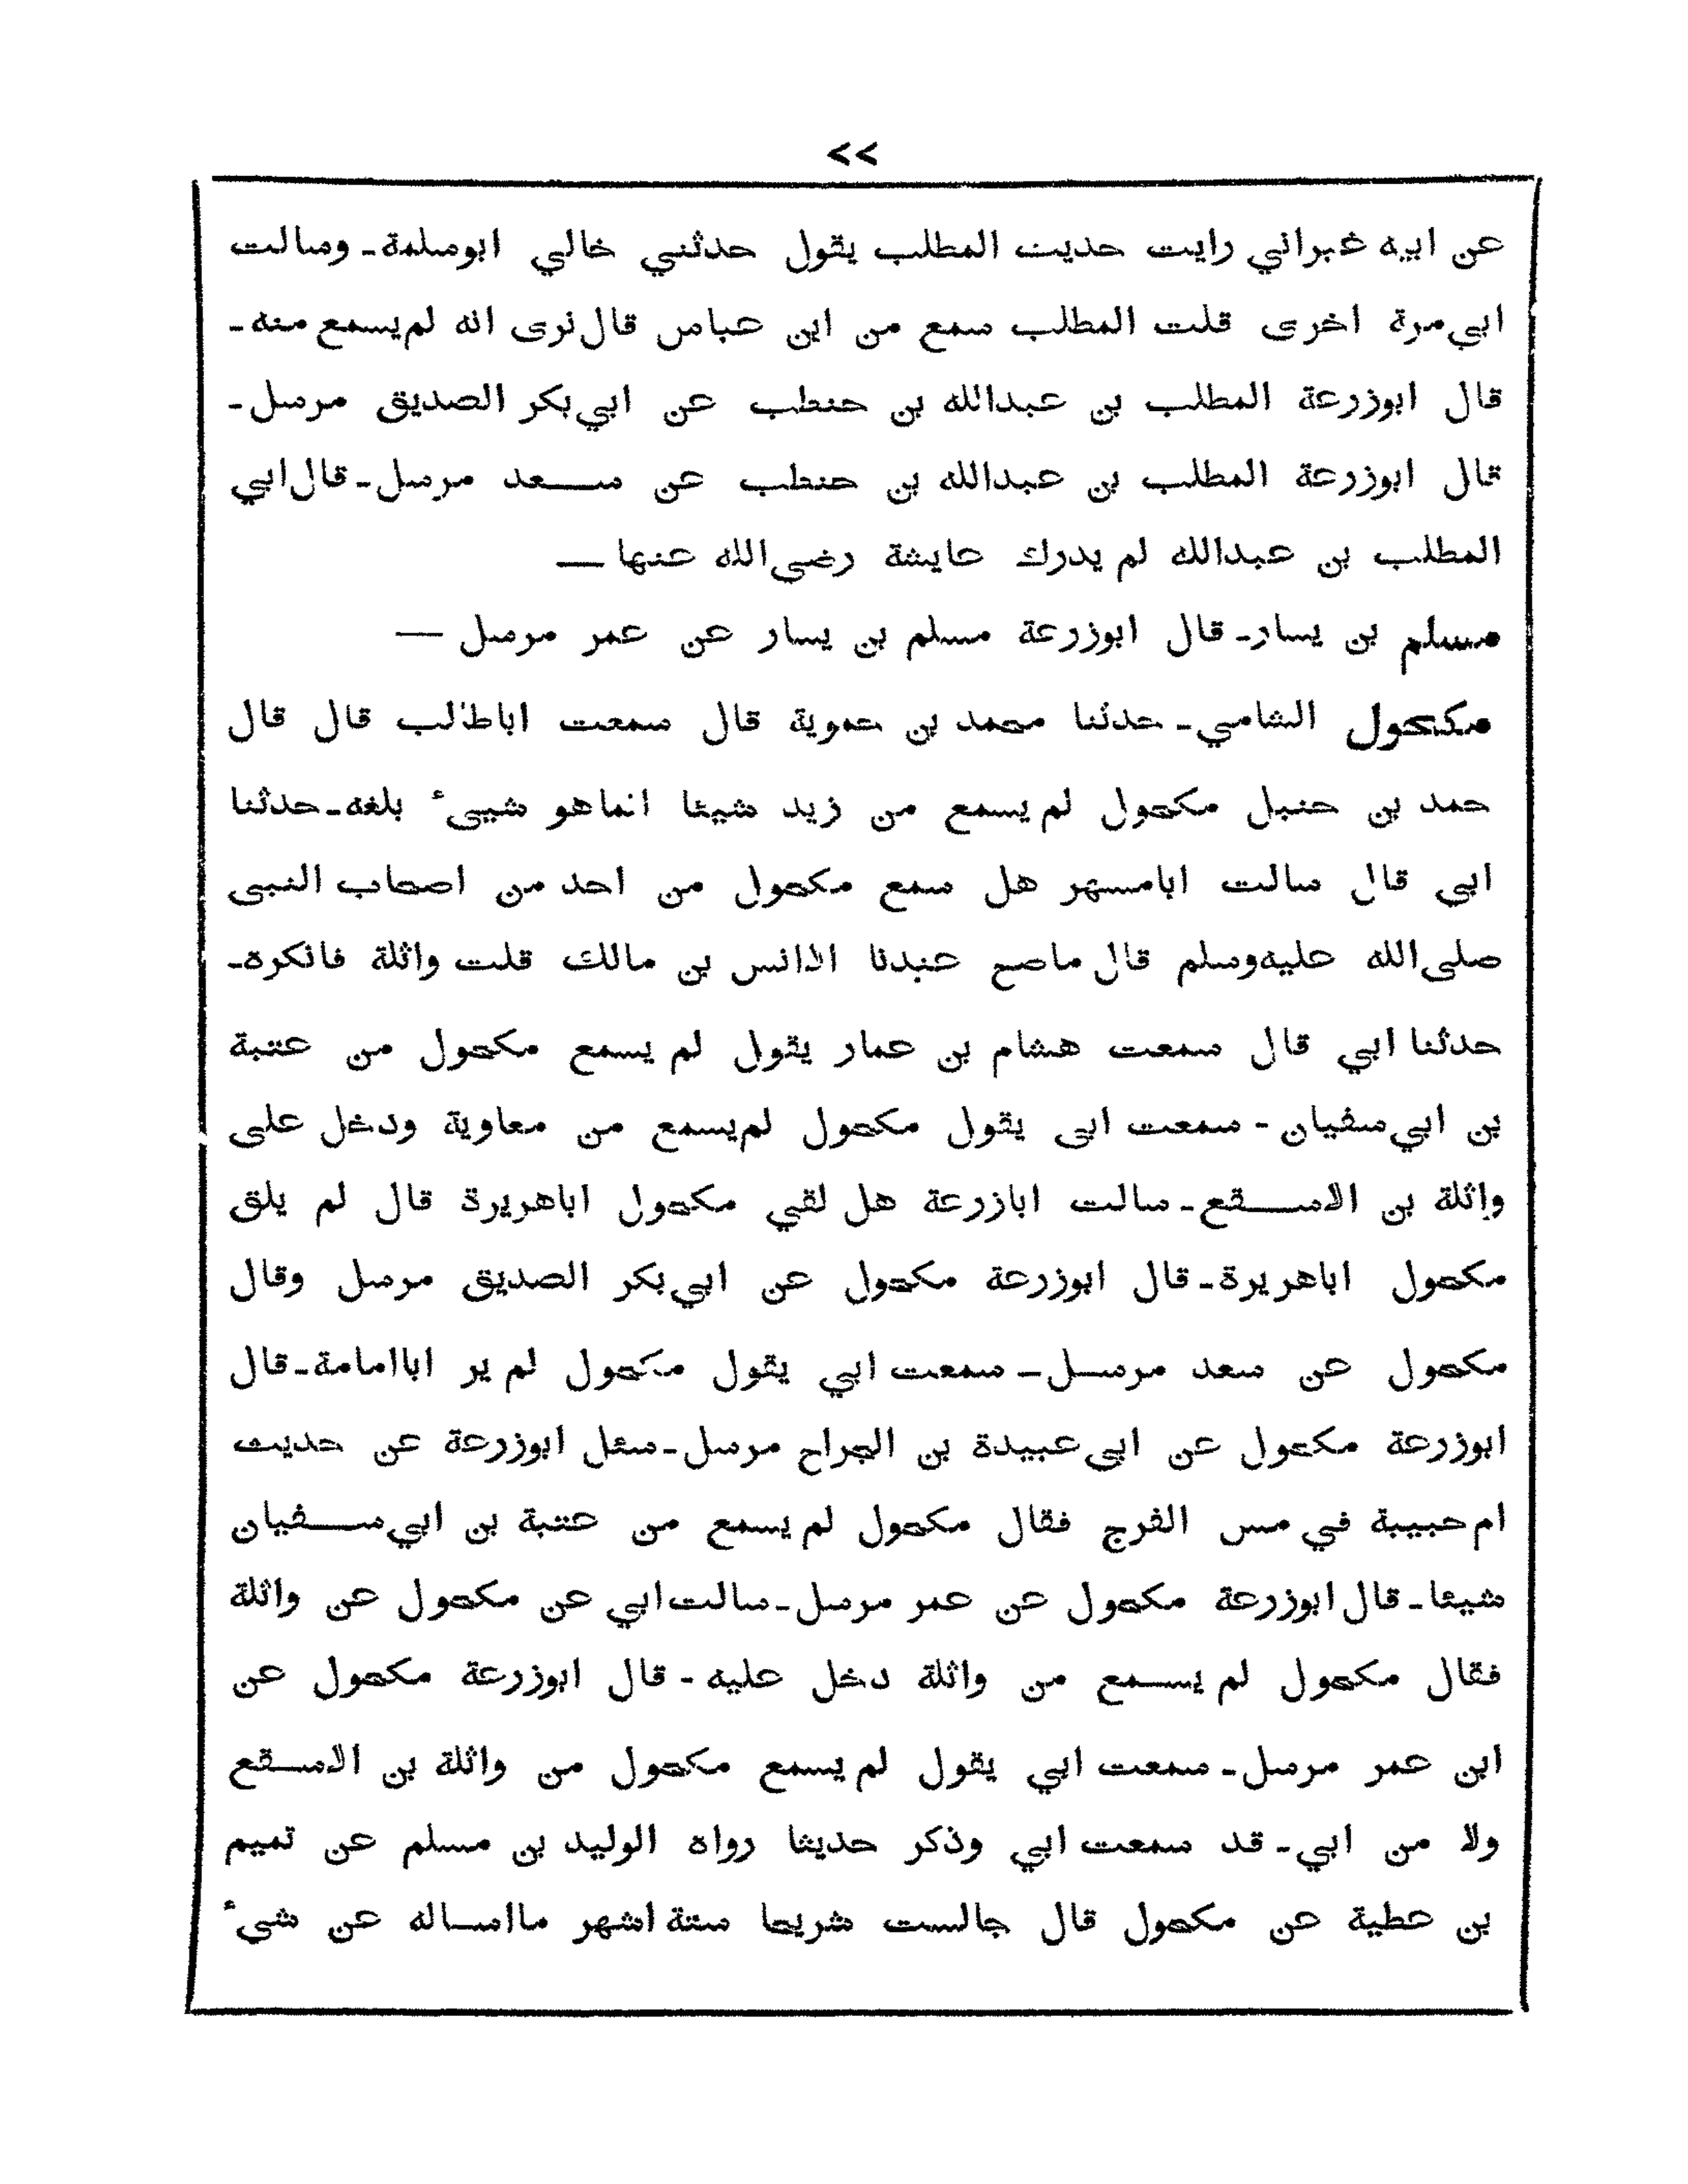 <<
عن ابيه غبراني رايت حديث المطلب يقول حدثني خالي ابوسلمة ـ وسالت
ابي مرة اخرى قلت المطلب سمع من ابن عباس قال نرى انه لم يسمع منه ـ
قال ابوزرعة المطلب بن عبدالله بن حنطب عن ابي بكر الصديق مرسل ـ
قال ابوزرعة المطلب بن عبدالله بن حنطب عن سعد مرسل ـ قال ابي
المطلب بن عبدالله لم يدرك عايشة رضي الله عنها ـ
مسلم بن يسار ـ قال ابوزرعة مسلم بن يسار عن عمر مرسل ـ
مكحول الشامي ـ حدثنا محمد بن حموية قال سمعت اباطالب قال قال
حمد بن حنبل مكحول لم يسمع من زيد شيئا انما هو شيىء بلغه ـ حدثنا
ابي قال سالت ابامسهر هل سمع مكحول من احد من اصحاب النبى
صلى الله عليه وسلم قال ماصح عندنا الا انس بن مالك قلت واثلة فانكره ـ
حدثنا ابي قال سمعت هشام بن عمار يقول لم يسمع مكحول من عتبة
بن ابي سفيان ـ سمعت ابى يقول مكحول لم يسمع من معاوية ودخل على
واثلة بن الاسقع ـ سالت ابازرعة هل لقي مكحول اباهريرة قال لم يلق
مكحول اباهريرة ـ قال ابوزرعة مكحول عن ابي بكر الصديق مرسل وقال
مكحول عن سعد مرسل ـ سمعت ابي يقول مكحول لم ير اباامامة ـ قال
ابوزرعة مكحول عن ابى عبيدة بن الجراح مرسل ـ سئل ابوزرعة عن حديث
ام حبيبة في مس الفرج فقال مكحول لم يسمع من عتبة بن ابي سفيان
شيئا ـ قال ابوزرعة مكحول عن عمر مرسل ـ سالت ابي عن مكحول عن واثلة
فقال مكحول لم يسمع من واثلة دخل عليه ـ قال ابوزرعة مكحول عن
ابن عمر مرسل ـ سمعت ابي يقول لم يسمع مكحول من واثلة بن الاسقع
ولا من ابي ـ قد سمعت ابي وذكر حديثا رواه الوليد بن مسلم عن تميم
بن عطية عن مكحول قال جالست شريحا ستة اشهر مااساله عن شىء